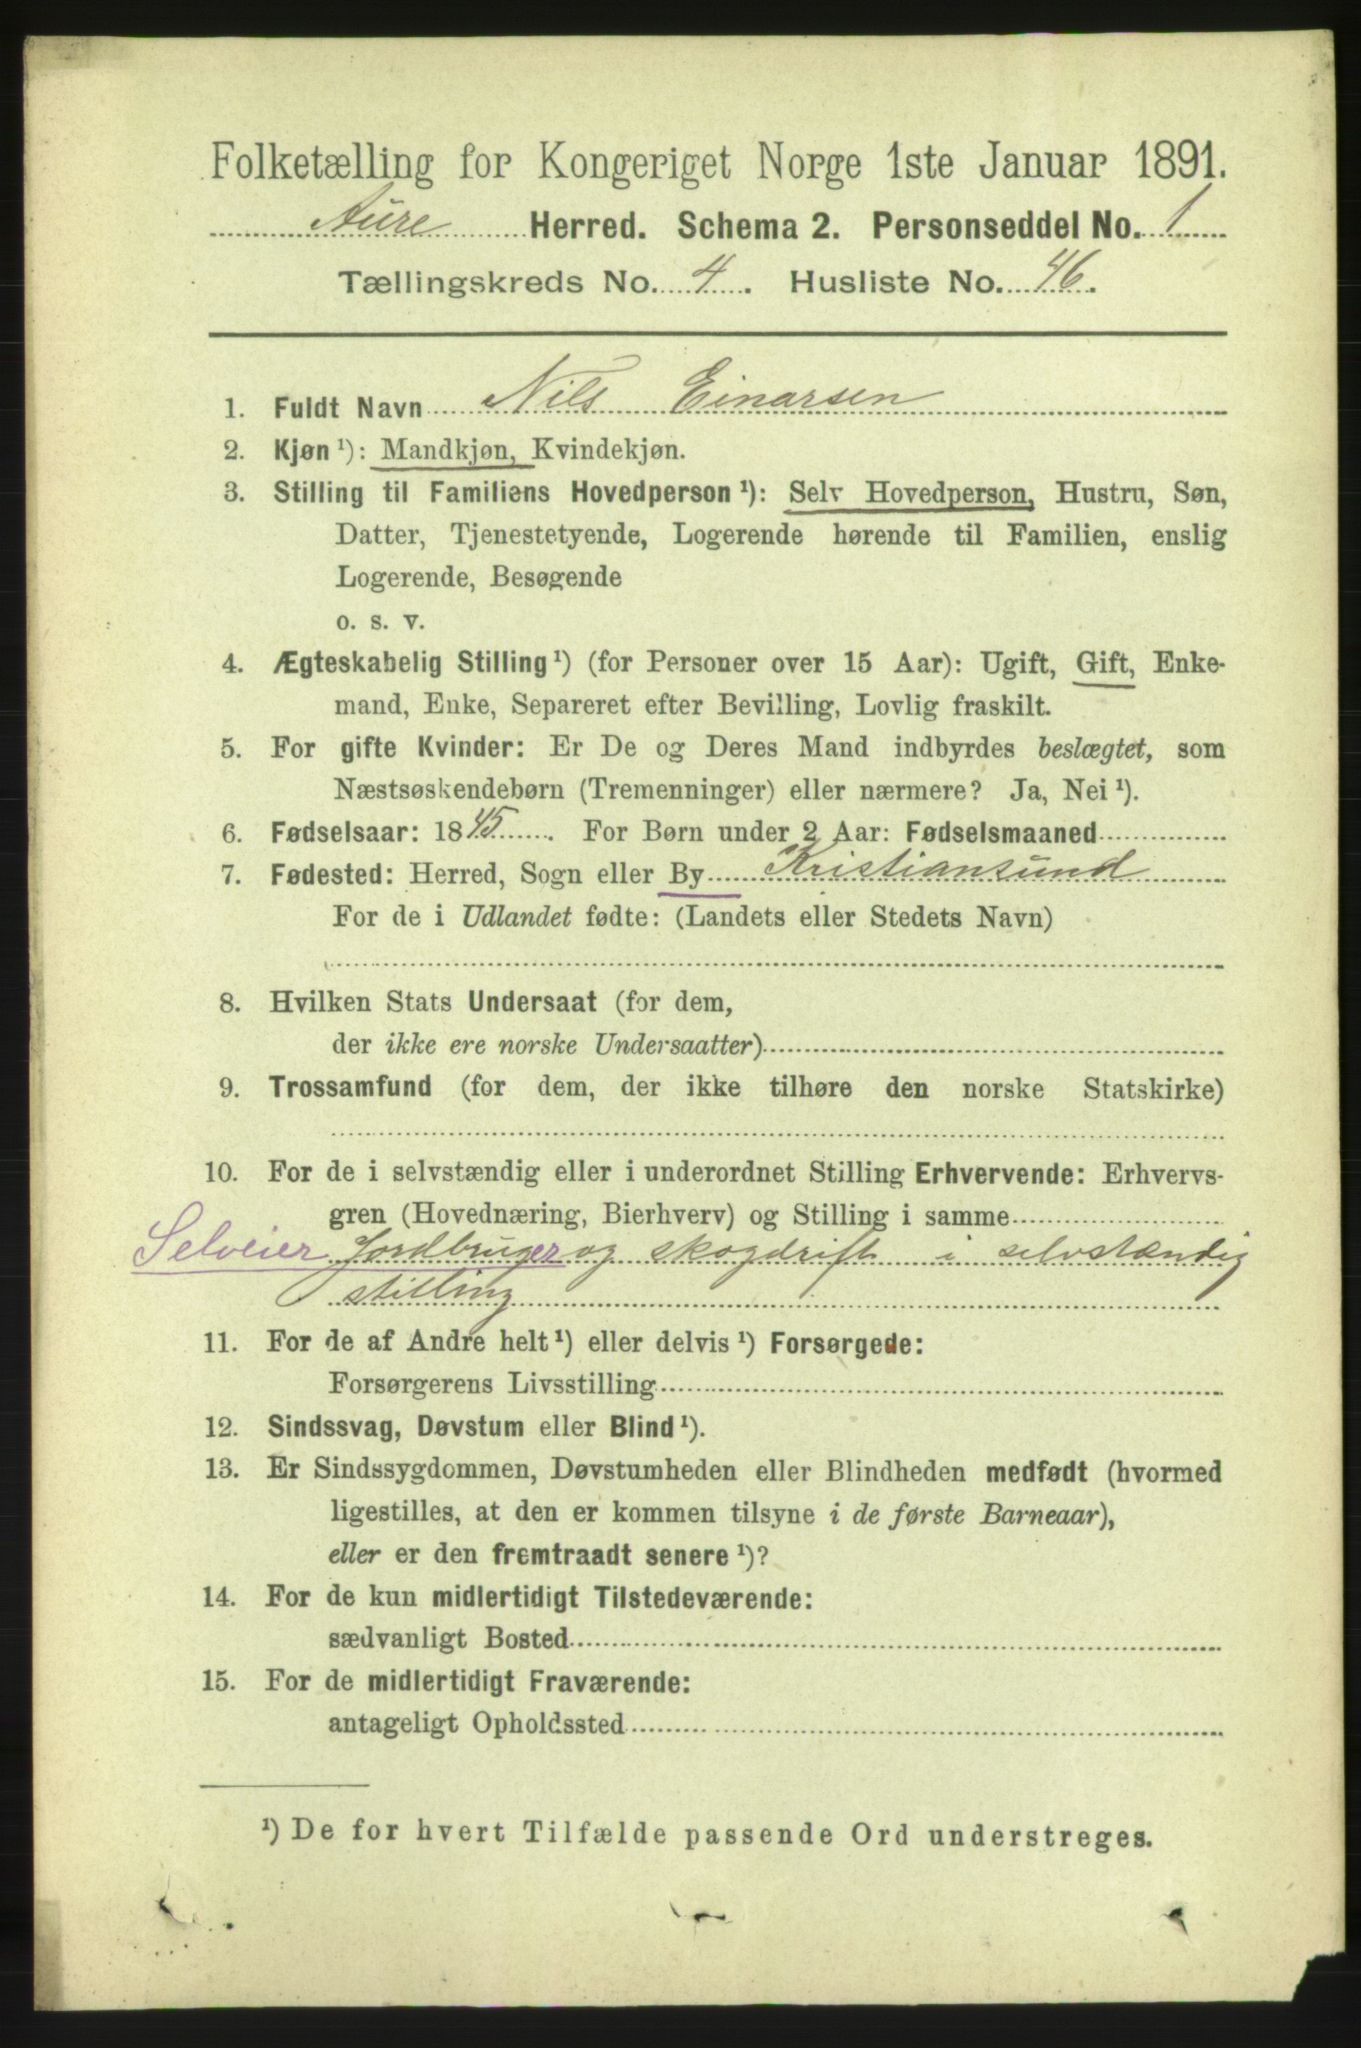 Folketælling for Kongeriget Norge 1ste Januar 1891.
Aure Herred. Schema 2. Personseddel No. 1
Tællingskreds No. 4. Husliste No. 46.
1. Fuldt Navn Nils Einarsen
2. Kjøn ¹): Mandkjøn, Kvindekjøn.
3. Stilling til Familiens Hovedperson ¹): Selv Hovedperson, Hustru, Søn,
Datter, Tjenestetyende, Logerende hørende til Familien, enslig
Logerende, Besøgende
o. s. v.
4. Ægteskabelig Stilling ¹) (for Personer over 15 Aar): Ugift, Gift, Enke-
mand, Enke, Separeret efter Bevilling, Lovlig fraskilt.
5. For gifte Kvinder: Er De og Deres Mand indbyrdes beslægtet, som
Næstsøskendebørn (Tremenninger) eller nærmere? Ja, Nei ¹).
6. Fødselsaar: 1845. For Børn under 2 Aar: Fødselsmaaned
7. Fødested: Herred, Sogn eller By Kristiansund
For de i Udlandet fødte: (Landets eller Stedets Navn)
8. Hvilken Stats Undersaat (for dem,
der ikke ere norske Undersaatter)
9. Trossamfund (for dem, der ikke tilhøre den norske Statskirke)
10. For de i selvstændig eller i underordnet Stilling Erhvervende: Erhvervs-
gren (Hovednæring, Bierhverv) og Stilling i samme
Selveier Jordbruger og skogdrift i selvstændig
stilling
11. For de af Andre helt ¹) eller delvis ¹) Forsørgede:
Forsørgerens Livsstilling
12. Sindssvag, Døvstum eller Blind ¹).
13. Er Sindssygdommen, Døvstumheden eller Blindheden medfødt (hvormed
ligestilles, at den er kommen tilsyne i de første Barneaar),
eller er den fremtraadt senere ¹)?
14. For de kun midlertidigt Tilstedeværende:
sædvanligt Bosted
15. For de midlertidigt Fraværende:
antageligt Opholdssted
¹) De for hvert Tilfælde passende Ord understreges.